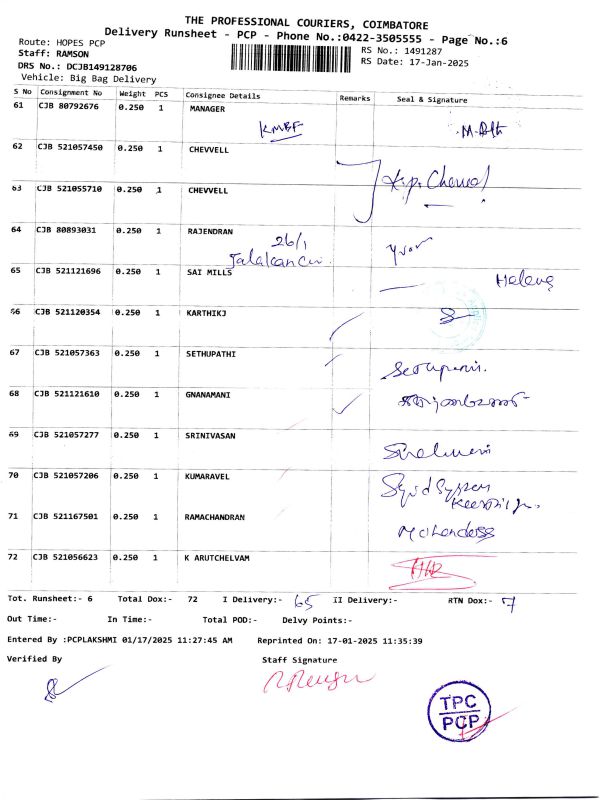 THE PROFESSIONAL COURIERS, COIMBATORE
Delivery Runsheet - PCP - Phone No.:0422-3505555 - Page No.:6
Route: HOPES PCP
Staff: RAMSON
DRS No.: DCJB149128706
Vehicle: Big Bag Delivery
RS No.: 1491287
RS Date: 17-Jan-2025
S No Consignment No Weight PCS Consignee Details Remarks Seal & Signature
61 CJB 80792676 0.250 1 MANAGER
KMBF
62 CJB 521057450 0.250 1 CHEVVELL
63 CJB 521055710 0.250 1 CHEVVELL
64 CJB 80893031 0.250 1 RAJENDRAN
26/1
65 CJB 521121696 0.250 1 SAI MILLS
66 CJB 521120354 0.250 1 KARTHIKJ
67 CJB 521057363 0.250 1 SETHUPATHI
68 CJB 521121610 0.250 1 GNANAMANI
69 CJB 521057277 0.250 1 SRINIVASAN
70 CJB 521057206 0.250 1 KUMARAVEL
71 CJB 521167501 0.250 1 RAMACHANDRAN
72 CJB 521056623 0.250 1 K ARUTCHELVAM
Tot. Runsheet:- 6 Total Dox:- 72 I Delivery:- 65 II Delivery:- RTN Dox:- 7
Out Time:- In Time:- Total POD:- Delvy Points:-
Entered By :PCPLAKSHMI 01/17/2025 11:27:45 AM Reprinted On: 17-01-2025 11:35:39
Verified By Staff Signature
TPC
PCP